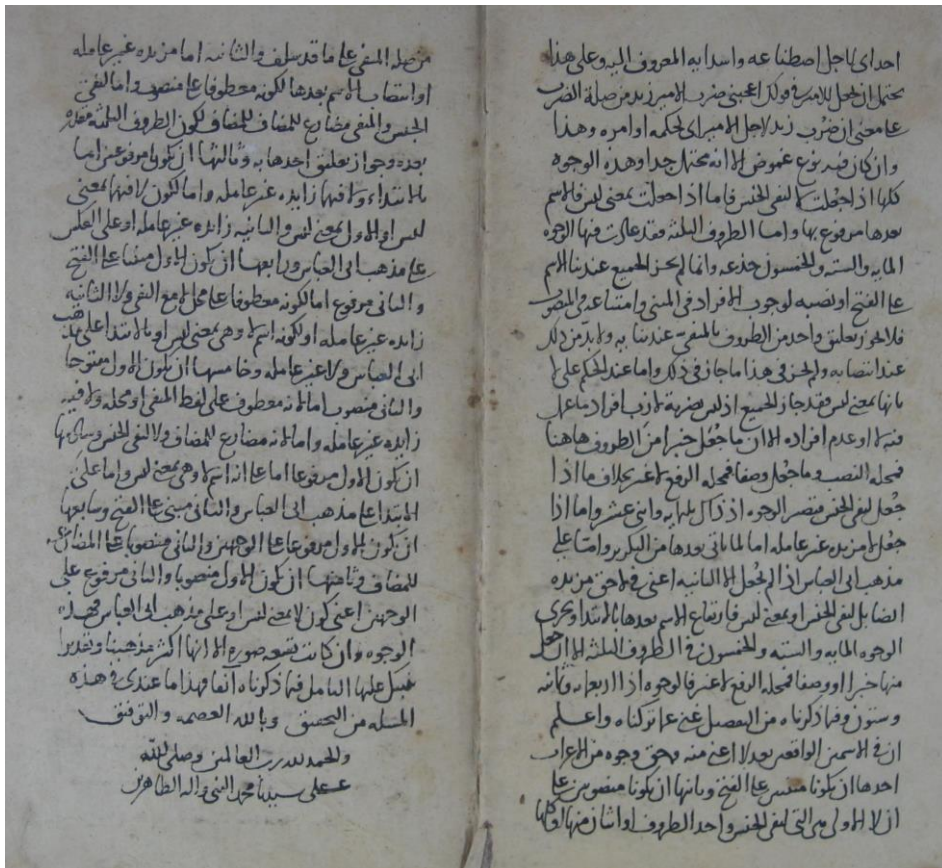 احدای لاجل اصطناعه واسدایه المعروف الیه وعلی هذا
یحتمل ان یجعل للامیر فی قولک اعجبنی ضرب الامیر زید من صلة الضرب
علی معنی ان ضرب زید لاجل الامیر ای لحکمه او امره وهذا
وان کان فیه نوع غموض الا انه محتمل جدا وهذه الوجوه
کلها اذا جعلت لا لنفی الجنس فاما اذا جعلت بمعنی لیس فالاسم
بعدها مرفوع بها واما الظروف الثلثه فقد عادت فیها الوجوه
المایه والسته والخمسون جذعه وانما لم یجز الجمیع عند بنا الاسم
علی الفتح او نصبه لوجوب الافراد فی المبنی وامتناعه فی المنصوب
فلا یجوز تعلیق واحد من الظروف بالمنفی عند بنایه ولابد من ذلک
عند انتصابه ولم یجز فی هذا ما جاز فی ذلک واما عند الحکم علی لا
بانها بمعنی لیس فقد جاز الجمیع اذ لیس بضربة لازب افراد ما عمل
فیه لا او عدم افراده الا ان ما جعل خبرا من الظروف هاهنا
فمحله النصب وما جعل وصفا فمحله الرفع لا غیر بخلاف ما اذا
جعل لنفی الجنس فتصیر الوجوه اذ ذاک ثلثمایه واثنی عشر واما اذا
جعل لا مزیده غیر عامله اما لما یاتی بعدها من التکریر واما علی
مذهب ابی العباس اذا لم یجعل لا الثانیه اعنی فی لاحق مزیده
ایضا بل لنفی الجنس او بمعنی لیس فارتفاع الاسم بعدها بالابتدا ویجری
الوجوه المایه والسته والخمسون فی الظروف الثلثه الا ان جعل
منها خبرا او وصفا فمحله الرفع لا غیر فالوجوه اذا اربعمایه وثمانیه
وستون وفیما ذکرناه من التفصیل غنی عما ترکناه واعلم
ان فی الاسمین الواقعین بعد لا اعنی منه وحق وجوه من الاعراب
احدها ان یکونا مبنیین علی الفتح وثانیها ان یکونا منصوبین علی
ان لا الاولی هی التی لنفی الجنس واحد الظروف او اثنان منها او کلها
من صله المنفی علی ما قد سلف والثانیه اما مزیده غیر عامله
او انتصاب الاسم بعدها لکونه معطوفا علی منصوب واما لنفی
الجنس والمنفی مضارع للمضاف لکون الظروف الثلثه مقدره
بعده وجواز تعلیق احدها به وثالثها ان یکونا مرفوعین اما
بالابتداء ولا فیها زایده غیر عامله واما لکون لا فیها بمعنی
لیس او الاول بمعنی لیس والثانیه زایده غیر عامله او علی العکس
علی مذهب ابی العباس ورابعها ان یکون الاول مبنیا علی الفتح
والثانی مرفوع اما لکونه معطوفا علی محل لا مع المنفی ولا الثانیه
زایده غیر عامله او لکونه اسم لا وهی بمعنی لیس او بالابتدا علی مذهب
ابی العباس ولا غیر عامله وخامسها ان یکون الاول مفتوحا
والثانی منصوب اما لانه معطوف علی لفظ المنفی او محله ولا فیه
زایده غیر عامله واما لانه مضارع للمضاف ولا لنفی الجنس وسادسها
ان یکون الاول مرفوعا اما علی انه اسم لا وهی بمعنی لیس واما علی
الابتدا علی مذهب ابی العباس والثانی مبنی علی الفتح وسابعها
ان یکون الاول مرفوعا علی الوجهین والثانی منصوبا علی المضارعه
للمضاف وثامنها ان یکون الاول منصوبا والثانی مرفوع علی
الوجهین اعنی کون لا بمعنی لیس او علی مذهب ابی العباس فهذه
الوجوه وان کانت تسعه صورة الا انها اکثر مذهبا وتقدیرا
علیها التامل فیما ذکرناه آنفا فهذا ما عندی فی هذه
المسئله من التحقیق وبالله العصمه والتوفیق
والحمد لله رب العالمین وصلی الله
علی سیدنا محمد النبی واله الطاهرین